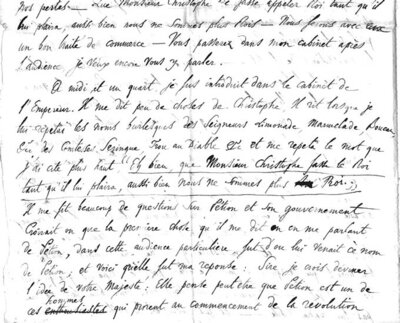 nos portes — Que Monsieur Christophe se fasse appeler Roi tant qu'il
lui plaira, aussi bien nous ne sommes plus Rois — Nous ferons avec eux
un bon traité de commerce — Vous passerez dans mon cabinet après
l'audience, je veux encore vous y parler.
A midi et un quart, je fus introduit dans le cabinet de
l'Empereur. Il me dit peu de choses de Christophe. Il rit lorsque je
lui répétai les noms burlesques des Seigneurs Limonade Marmelade
Trou au Diable &a et me répéta le mot que
j'ai cité plus haut "Eh bien, que Monsieur Christophe fasse le Roi
tant qu'il lui plaira, aussi bien nous ne sommes plus Rois."
Il me fit beaucoup de questions sur Pétion et son gouvernement
Croirait on que la première chose qu'il me dit en me parlant
de Pétion, dans cette audience particulière, fut d'où lui venait ce nom
de Pétion, et voici quelle fut ma réponse: Sire, je crois deviner
l'idée de votre Majesté: Elle pense peut être que Pétion est un de
hommes
ces enthousiastes qui prirent au commencement de la révolution